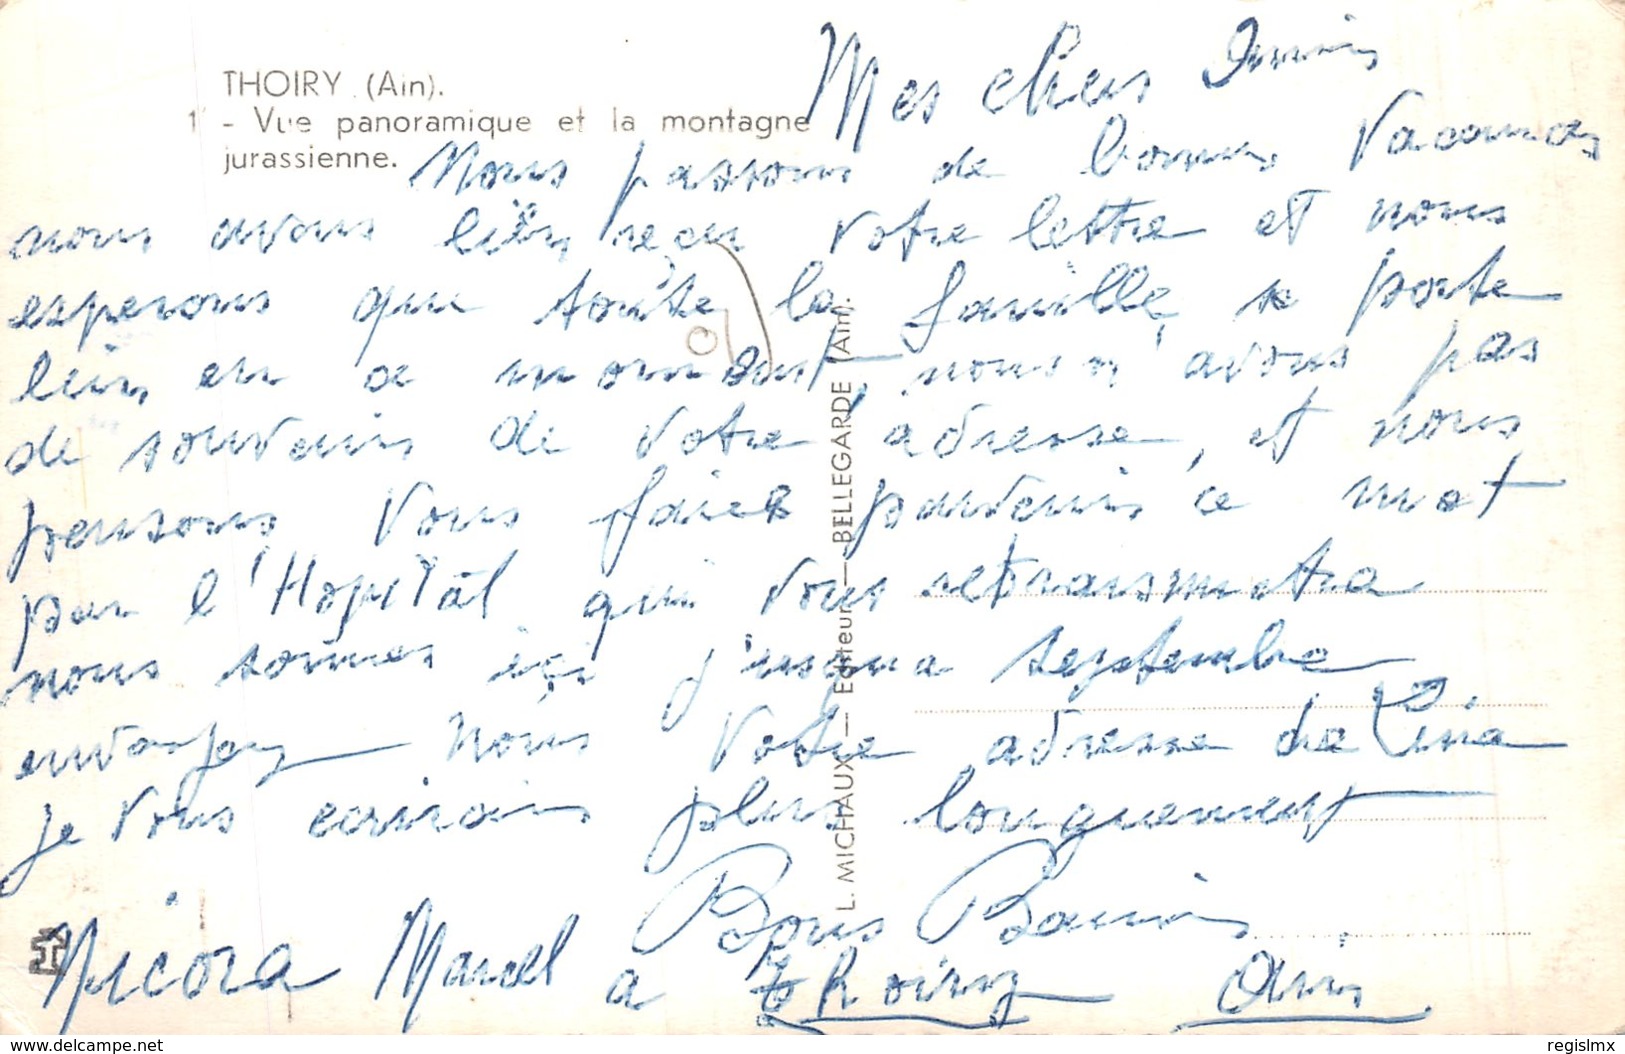 THOIRY (Ain).
1 - Vue panoramique et la montagne
jurassienne.
Mes chers Amis
Nous passons de bonnes Vacances
nous avons bien reçu votre lettre et nous
esperons que toute la famille se porte
bien en ce moment, nous n'avons pas
de souvenir de votre adresse, et nous
pensons Vous faire parvenir ce mot
par l'Hopital qui vous retransmettra
nous sommes ici j'usqua septembre
envoyez nous Votre adresse de
je Vous ecrirais plus longuement
Bons Baisers
Micora Marcel a Thoiry Ain
L. MICHAUX — Editeur — BELLEGARDE (Ain).
www.delcampe.net
regislmx